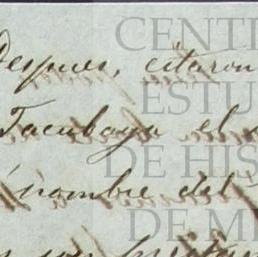 Despues, citaron
Tacubaya el
nombre del
CENT
ESTU
DE HIS
DE M